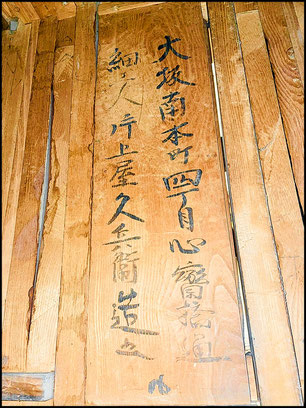 大坂南本町四丁目心齋橋通
細工人片上屋久兵衛造之